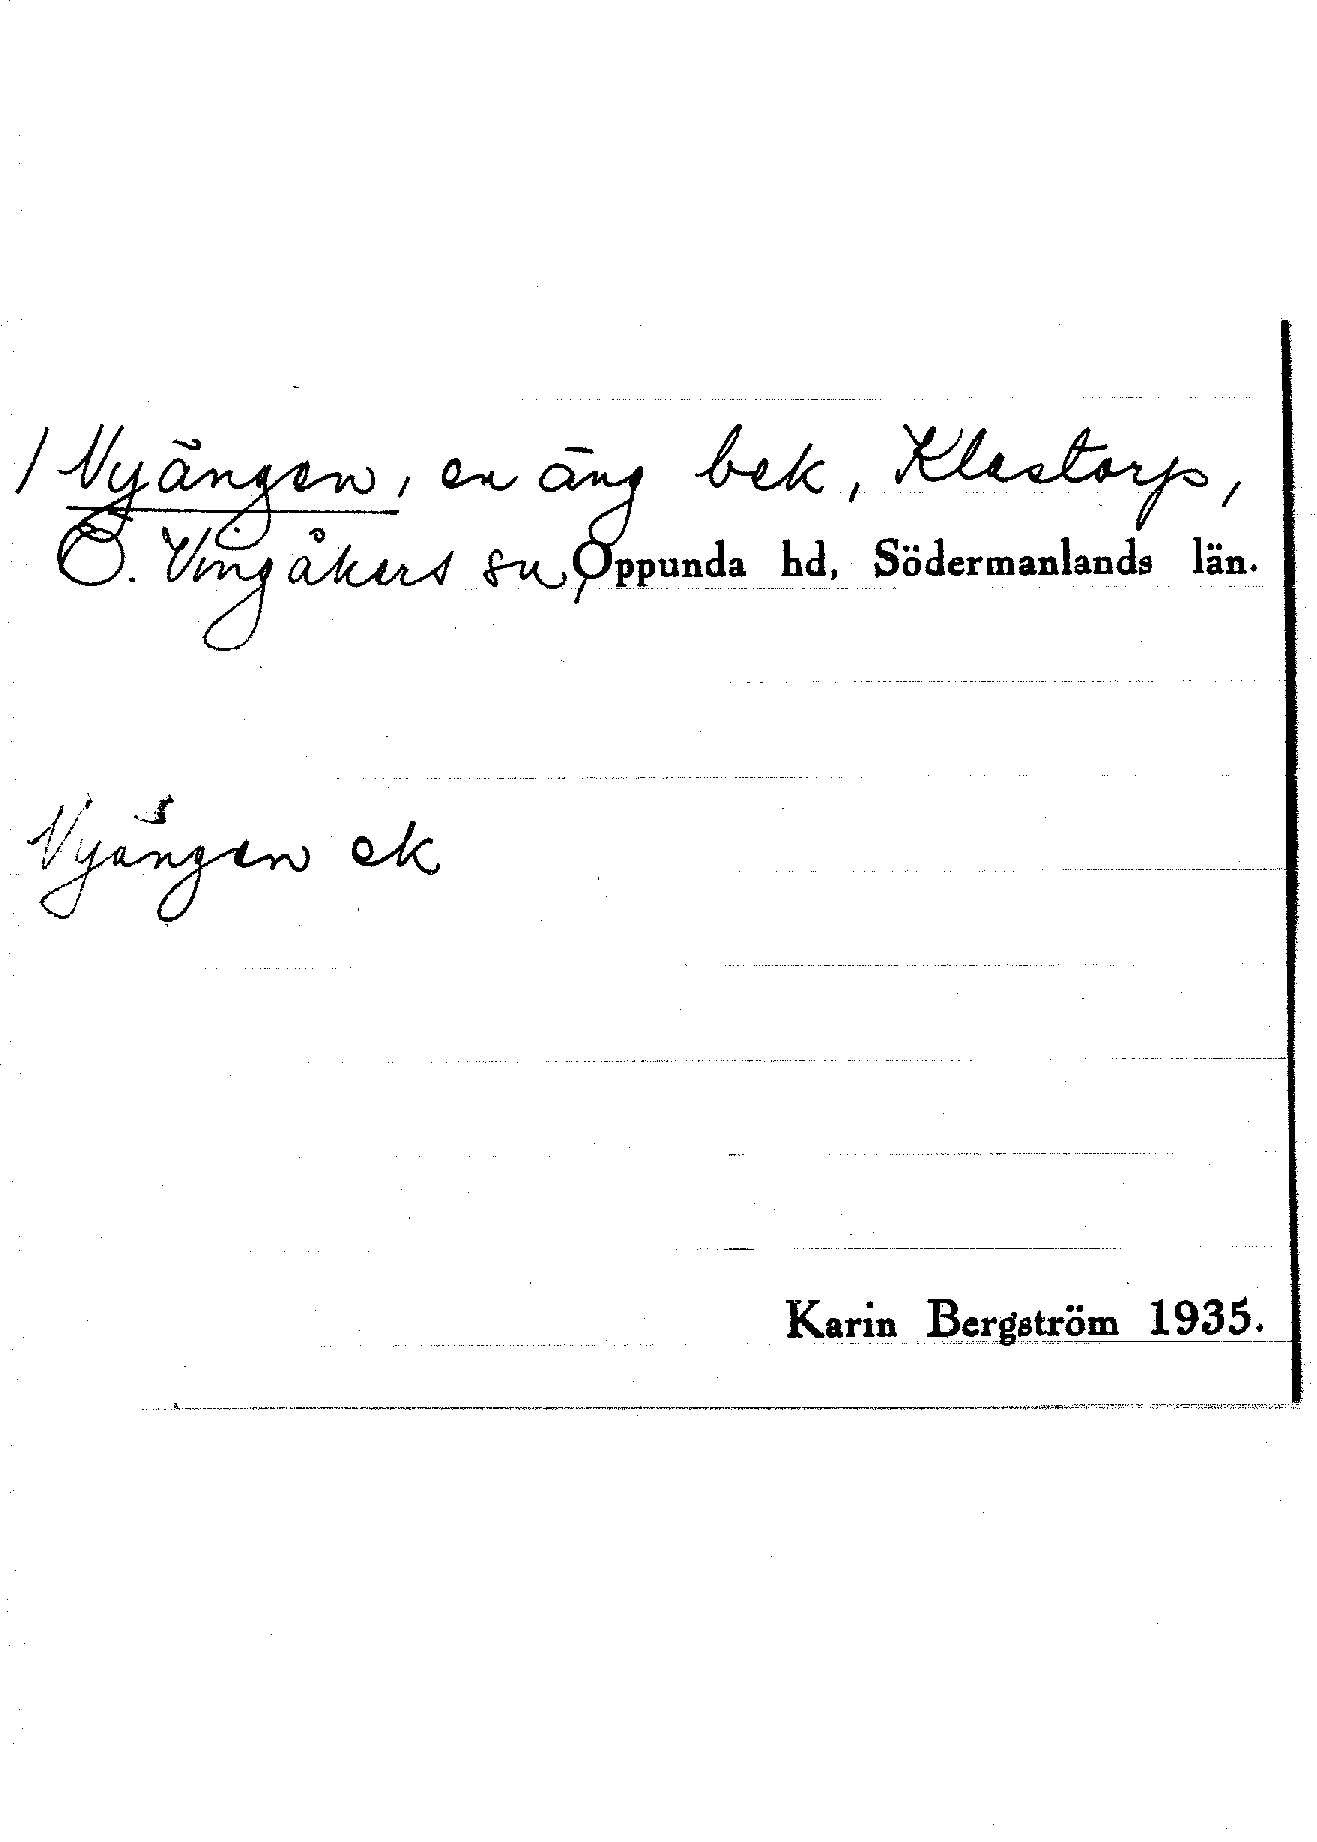 / Nyängen, en äng bek, Klastorp,
Ö. Vingåkers sn, Oppunda hd, Södermanlands län.
Nyängen ek
Karin Bergström 1935.